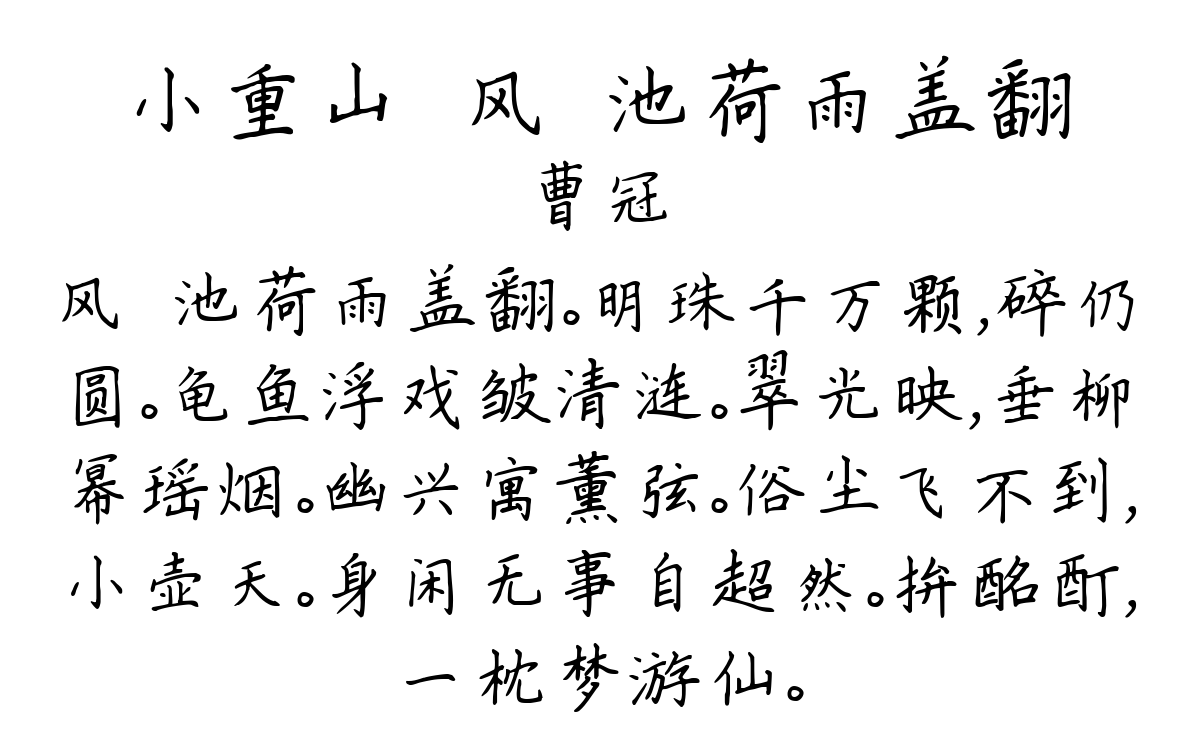 小重山 风 池荷雨盖翻
曹冠
风 池荷雨盖翻。明珠千万颗,碎仍
圆。龟鱼浮戏皱清涟。翠光映,垂柳
幂瑶烟。幽兴寓薰弦。俗尘飞不到,
小壶天。身闲无事自超然。拚酩酊,
一枕梦游仙。